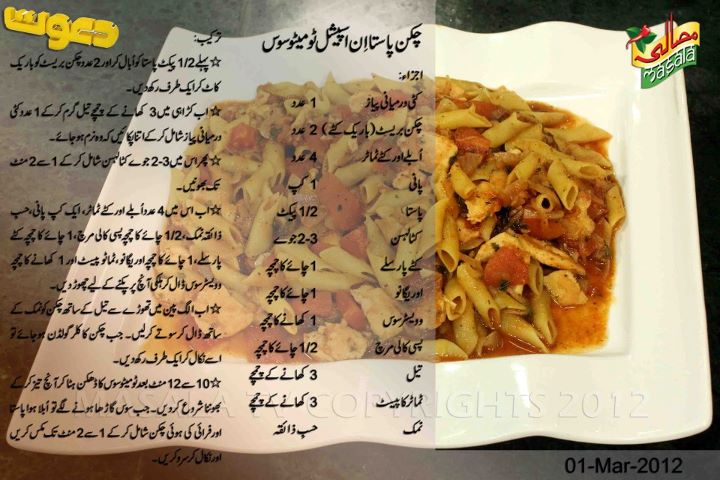 چکن پاستا اِن اسپیشل ٹومیٹو سوس
اجزاء:
کٹی درمیانی پیاز 1 عدد
چکن بریسٹ (باریک کٹے) 2 عدد
اُبلے اور کٹے ٹماٹر 4 عدد
پانی 1 کپ
پاستا 1/2 پیکٹ
کٹا لہسن 2-3 جوے
کٹے پارسلے 1 چائے کا چمچہ
اوریگانو 1 چائے کا چمچہ
وویسٹر سوس 1 کھانے کا چمچہ
پسی کالی مرچ 1/2 چائے کا چمچہ
تیل 3 کھانے کے چمچے
ٹماٹر کا پیسٹ 3 کھانے کے چمچے
نمک حسبِ ذائقہ
ترکیب:
☆ پہلے 1/2 پیکٹ پاستا کو اُبال کر اور 2 عدد چکن بریسٹ کو باریک
کاٹ کر ایک طرف رکھ دیں۔
☆ اب کڑاہی میں 3 کھانے کے چمچے تیل گرم کرکے 1 عدد کٹی
درمیانی پیاز شامل کرکے اتنا پکائیں کہ وہ نرم ہو جائے۔
☆ پھر اس میں 2-3 جوے کٹا لہسن شامل کرکے 1 سے 2 منٹ
تک بھونیں۔
☆ اب اس میں 4 عدد اُبلے اور کٹے ٹماٹر، ایک کپ پانی، حسب
ذائقہ نمک، 1/2 چائے کا چمچہ پسی کالی مرچ، 1 چائے کا چمچہ کٹے
پارسلے، 1 چائے کا چمچہ اوریگانو، ٹماٹو پیسٹ اور 1 کھانے کا چمچہ
وویسٹر سوس ڈال کر ہلکی آنچ پر پکنے کے لیے چھوڑ دیں۔
☆ اب الگ پین میں تھوڑے سے تیل کے ساتھ چکن کو نمک کے
ساتھ ڈال کر سوتے کرلیں۔ جب چکن کا کلر گولڈن ہو جائے تو
اسے نکال کر ایک طرف رکھ دیں۔
☆ 10 سے 12 منٹ بعد ٹومیٹو سوس کا ڈھکن ہٹا کر آنچ تیز کرکے
بھوننا شروع کردیں۔ جب سوس گاڑھا ہونے لگے تو اُبلا ہوا پاستا
اور فرائی کی ہوئی چکن شامل کرکے 1 سے 2 منٹ تک مکس کریں
اور نکال کر سرو کریں۔
دعوت
مصالحہ
masala
MASALA TV COPYRIGHTS 2012
01-Mar-2012